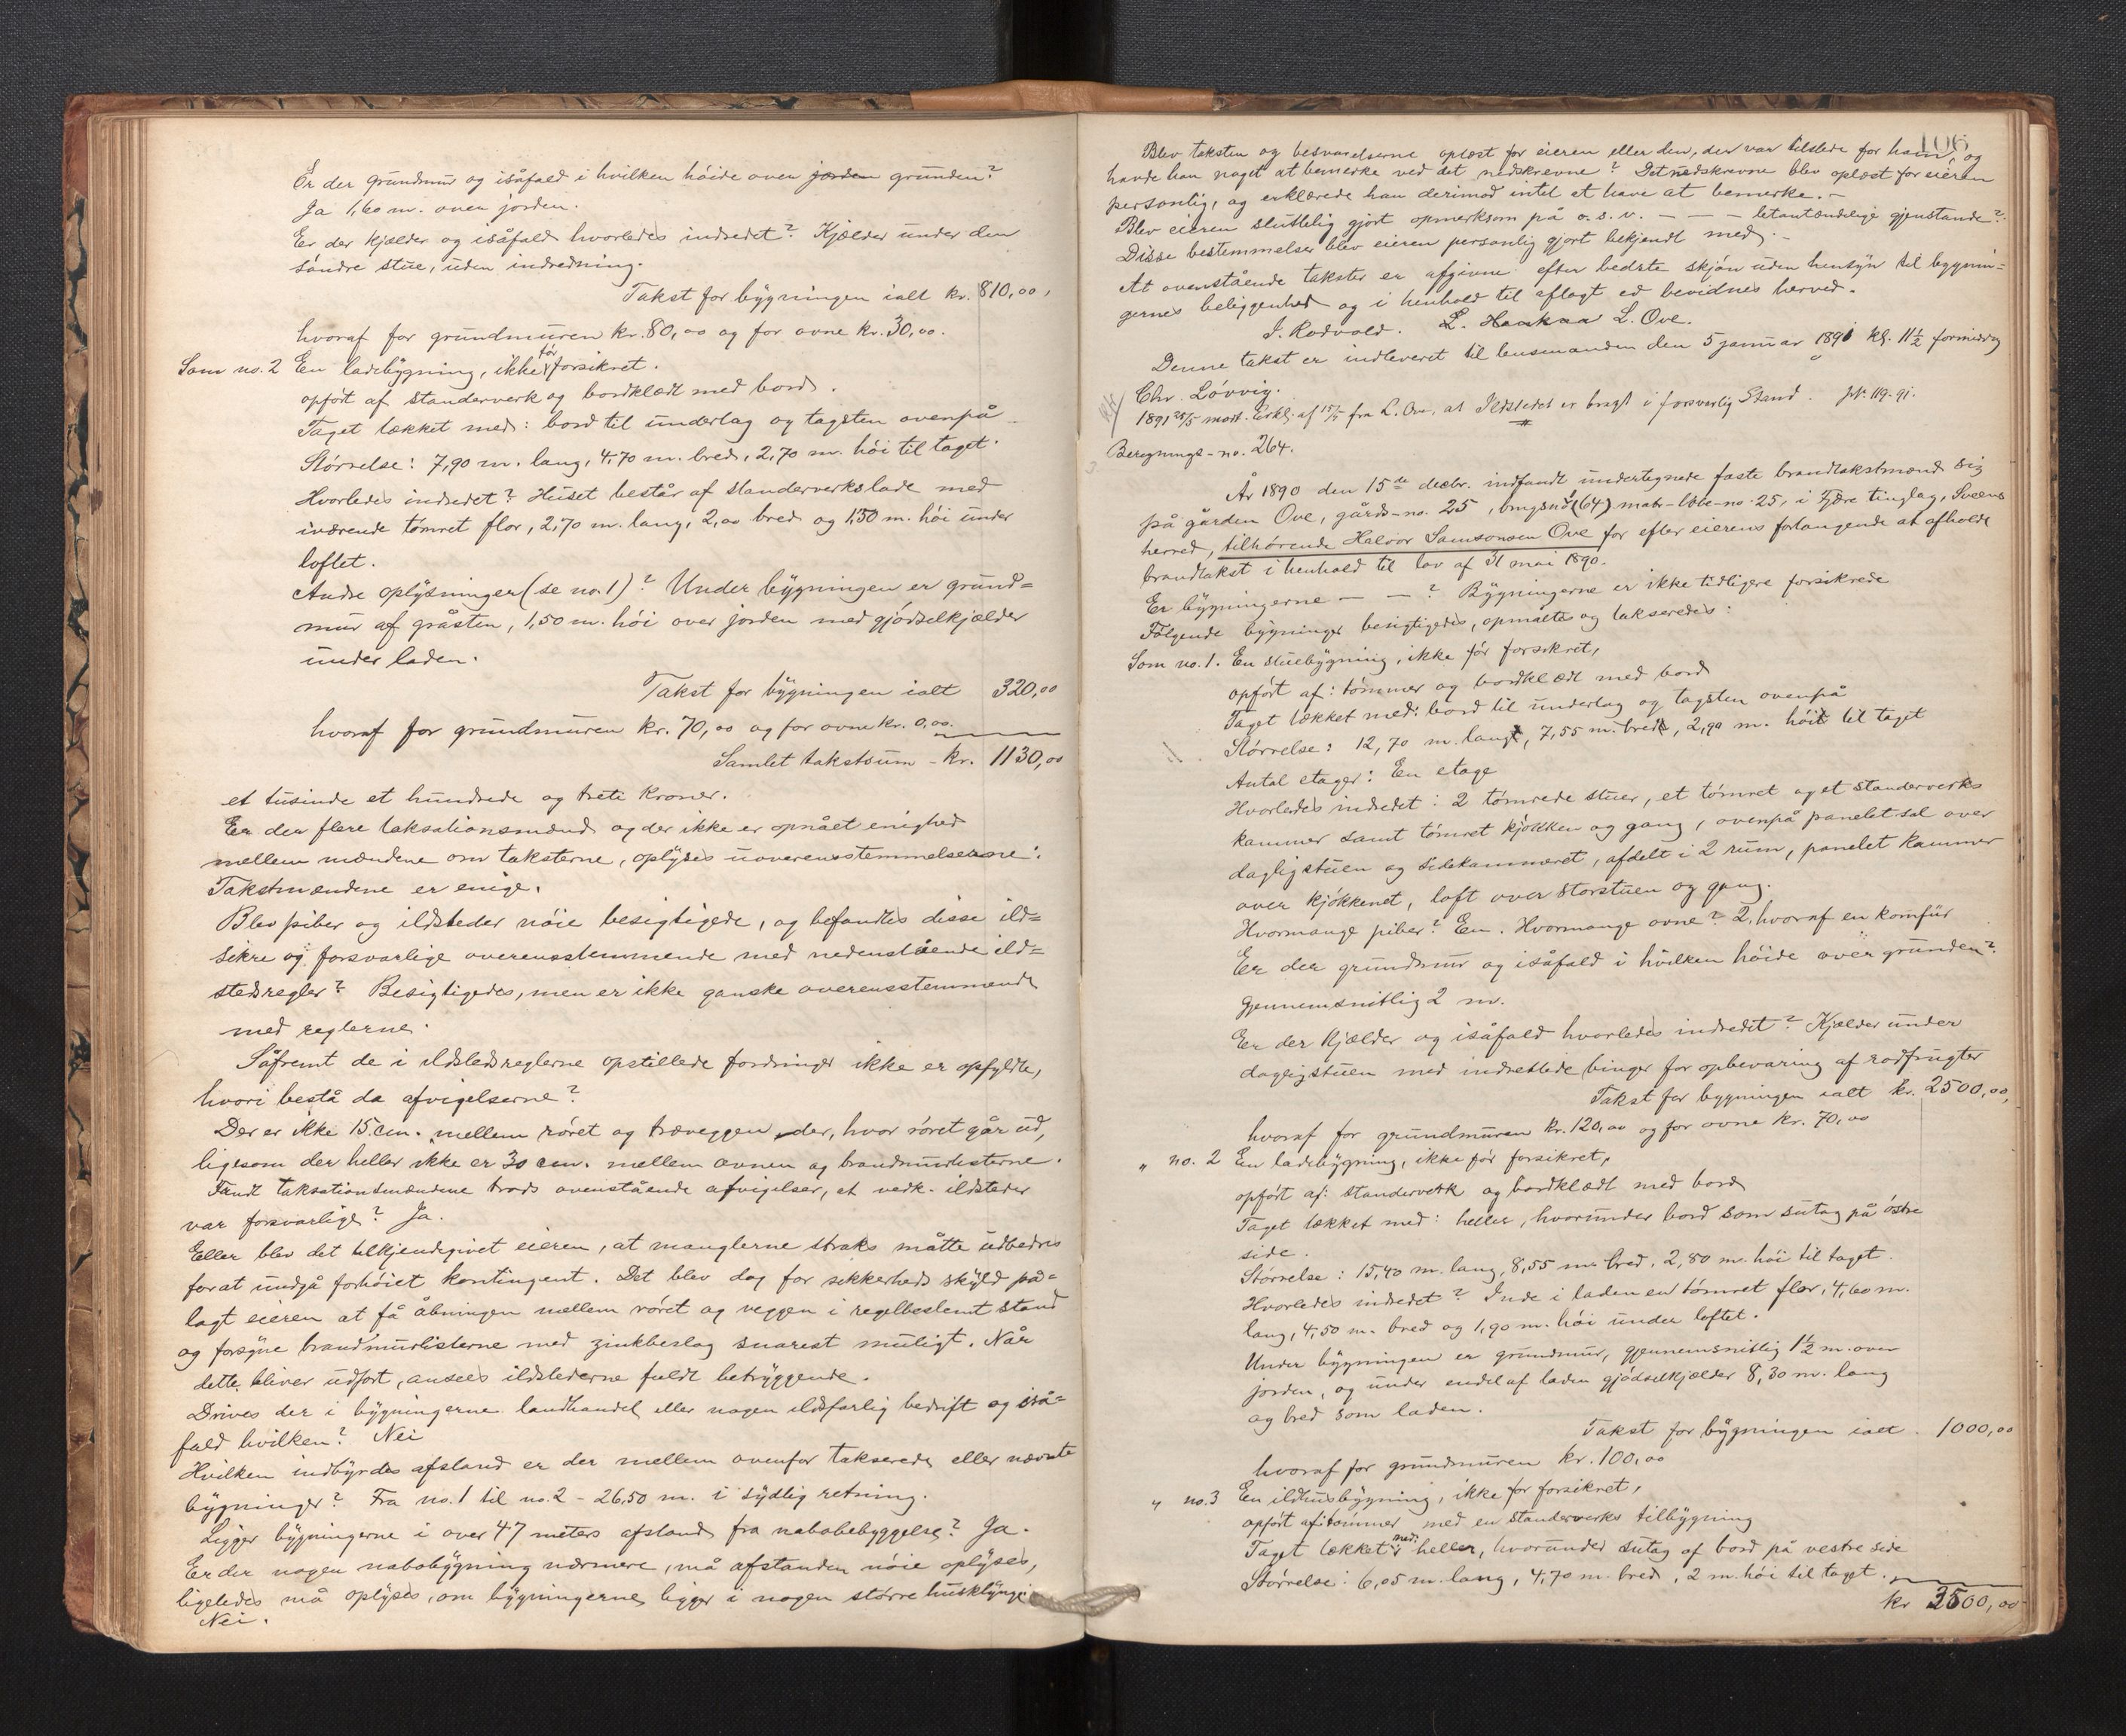 Er der grundmur og isåfald i hvilken höide over jorden grunden?
Ja 1,60 m. over jorden.
Er der kjælder og isåfald hvorledes indredet? Kjælder under den
söndre stue, uden indredning.
Takst for bygningen ialt kr. 810,00,
hvoraf for grundmuren kr. 80,00 og for ovne kr. 30,00.
Som no. 2 En ladebygning, ikke för forsikret.
opfört af standerverk og bordklædt med bord.
Taget tækket med: bord til underlag og tagsten ovenpå
Störrelse: 7,90 m. lang, 4,70 m. bred, 2,70 m. höi til taget.
Hvorledes indredet? Huset består af standerverkslade med
iværende tömret flor, 2,70 m. lang, 2,00 bred og 1,50 m. höi under
loftet.
Andre oplysninger (se no. 1)? Under bygningen er grund=
mur af gråsten, 1,50 m. höi over jorden med gjödselkjælder
under laden.
Takst for bygningen ialt 320,00
hvoraf for grundmuren kr. 70,00 og for ovne kr. 0,00.
Samlet takstsum - kr. 1130,00
et tusinde et hundrede og treti kroner.
Er der flere taksationsmænd og der ikke er opnået enighed
mellem mændene om taksterne, oplyses uoverensstemmelserne:
Takstmændene er enige.
Blev piber og ildsteder nöie besigtigede, og befandtes disse ild=
sikre og forsvarlige overensstemmende med nedenstående ild=
stedsregler? Besigtigedes, men er ikke ganske overensstemmende
med reglerne.
Såfremt de i ildstedsreglerne opstillede fordringer ikke er opfyldte,
hvori bestå da afvigelserne?
Der er ikke 15 cm. mellem röret og træveggen der, hvor röret går ud,
ligesom der heller ikke er 30 cm. mellem ovnen og brandmurlisterne.
Fandt taksationsmændene trods ovenstående afvigelser, at vedk. ildsteder
var forsvarlige? Ja.
Eller blev det tilkjendegivet eieren, at manglerne straks måtte udbedres
forat undgå forhöiet kontingent. Det blev dog for sikkerheds skyld på=
lagt eieren at få åbningen mellem röret og veggen i regelbestemt stand
og forsyne brandmurlisterne med zinkbeslag snarest muligt. Når
dette bliver udfört, ansees ildstederne fuldt betryggende.
Drives der i bygningerne landhandel eller nogen ildsfarlig bedrift og iså=
fald hvilken? Nei
Hvilken indbyrdes afstand er der mellem ovenfor takserede eller nævnte
bygninger? Fra no. 1 til no. 2 - 26,50 m. i sydlig retning.
Ligger bygningerne i over 47 meters afstand fra nabobebyggelse? Ja.
Er der nogen nabobygning nærmere, må afstanden nöie oplyses,
ligeledes må oplyses, om bygningerne ligger i nogen större husklynge
Nei.
106
Blev taksten og besvarelserne oplæst for eieren eller den, der var tilstede for ham, og
havde han noget at bemerke ved det nedskrevne? Det nedskrevne blev oplæst for eieren
personlig, og erklærede han derimod intet at have at bemerke. -
Blev eieren sluttelig gjort opmerksom på o.s.v. - - - letantændelige gjenstande?
Disse bestemmelser blev eieren personlig gjort bekjendt med. -
At ovenstående takster er afgivne efter bedste skjön uden hensyn til bygnin=
gernes beliggenhed og i henhold til aflagt ed bevidnes herved.
J. Rodvold. L. Haakaa L. Ove.
Denne takst er indleveret til lensmanden den 5 januar 1891 kl. 11½ formiddag
Chr. Lövvig.
1891 28/5 modt. Erkl. af 15/5 fra L. Ove, at Ildstedet er bragt i forsvarlig Stand. Jr. 119. 91.
Beregnings-no. 264.
År 1890 den 15de decbr. indfandt undertegnede faste brandtakstmænd sig
på gården Ove, gårds-no. 25, brugsno. (64) matr-löbe-no 25, i Fjære tinglag, Sveens
herred, tilhörende Halvor Samsonsen Ove for efter eierens forlangende at afholde
brandtakst i henhold til lov af 31 mai 1890.
Er bygningerne - - ? Bygningerne er ikke tidligere forsikrede
Fölgende bygninger besigtigedes, opmåltes og takseredes:
Som no. 1. En stuebygning, ikke för forsikret,
opfört af: tömmer og bordklædt med bord
Taget tækket med: bord til underlag og tagsten ovenpå
Störrelse: 12,70 m. lang, 7,55 m. bred, 2,90 m. höi til taget
Antal etager: En etage
Hvorledes indredet: 2 tömrede stuer, et tömret og et standerverks
kammer samt tömret kjökken og gang, ovenpå panelet sal over
dagligstuen og sidekammeret, afdelt i 2 rum, panelet kammer
over kjökkenet, loft over storstuen og gang.
Hvormange piber? En. Hvormange ovne? 2, hvoraf en komfur
Er der grundmur og isåfald i hvilken höide over grunden?
gjennemsnitlig 2 m.
Er der kjælder og isåfald hvorledes indredet? Kjælder under
dagligstuen med indrettede binger for opbevaring af rodfrugter
Takst for bygningen ialt kr. 2500,00,
hvoraf for grundmuren kr. 120,00 og for ovne kr. 70,00
" no. 2 En ladebygning, ikke för forsikret,
opfört af: standerverk og bordklædt med bord
Taget tækket med: heller, hvorunder bord som sutag på östre
side.
Störrelse: 15,40 m. lang, 8,55 m. bred, 2,80 m. höi til taget.
Hvorledes indredet? Inde i laden en tömret flor, 4,60 m.
lang, 4,50 m. bred og 1,90 m. höi under loftet.
Under bygningen er grundmur, gjennemsnitlig 1½ m. over
jorden, og under endel af laden gjödselkjælder 8,30 m. lang
og bred som laden.
Takst for bygningen ialt. 1000,00
hvoraf for grundmuren kr. 100,00
" no. 3 En ildhusbygning, ikke för forsikret,
opfört af: tömmer med en standerverks tilbygning
Taget tækket med heller, hvorunder sutag af bord på vestre side
Störrelse: 6,05 m. lang, 4,70 m. bred, 2 m. höi til taget.
kr 3500,00